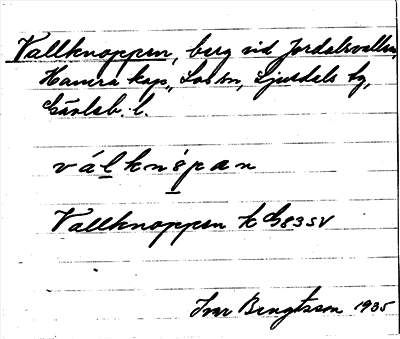 Vallknoppen, berg vid Jordalsvallen,
Hamra kap., Los sn, Ljusdals tg,
Gävleb. l.
válknöpan
Vallknoppen k G83SV
Ivar Bengtsson 1935